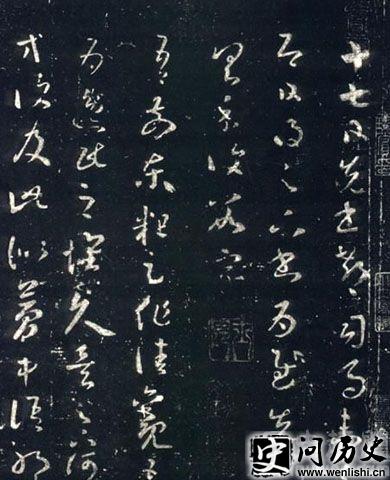 十七日先書郗司馬未
即日得足下書為慰先
具示復數字
吾前東粗足作佳觀吾
為逸民之懷久矣足下何
方復及此似夢中語耶
史
问历史
www.wenlishi.cn